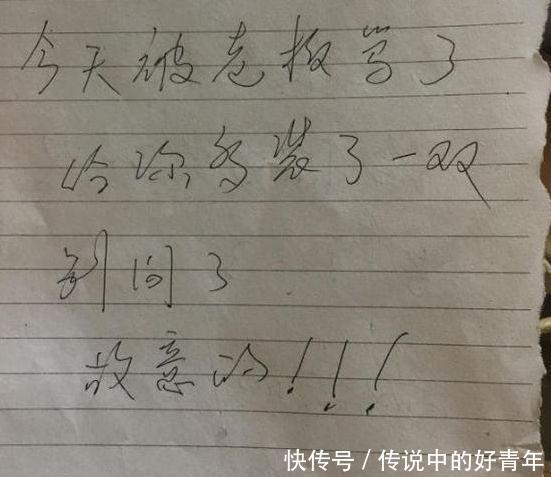 今天被老板骂了
给你多装了一双
别问了
故意的!!!
快传号/传说中的好青年